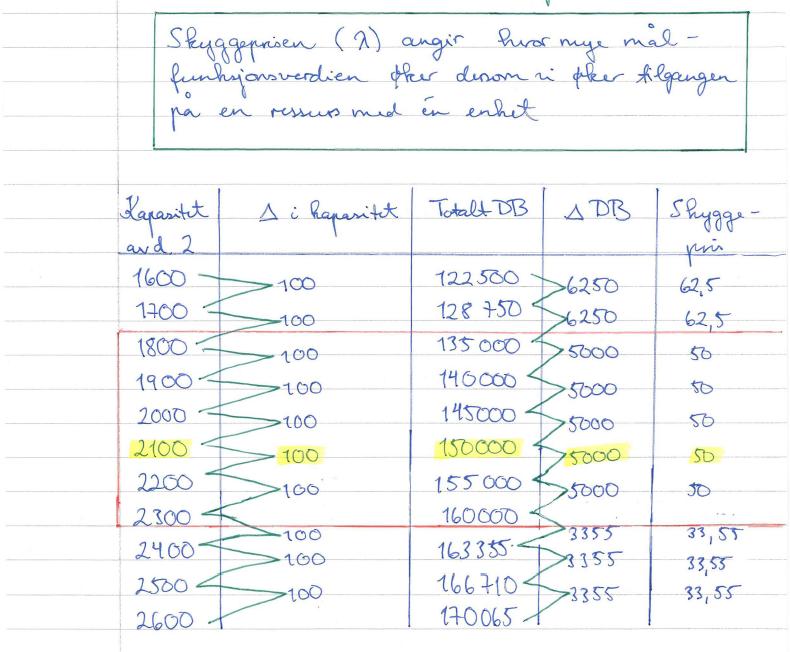 Skyggeprisen (λ) angir hvor mye mål-
funksjonsverdien øker dersom vi øker tilgangen
på en ressurs med én enhet
Kapasitet avd. 2 Δ i kapasitet Totalt DB Δ DB Skygge-pris
1600 122500
100 6250 62,5
1700 128750
100 6250 62,5
1800 135000
100 5000 50
1900 140000
100 5000 50
2000 145000
100 5000 50
2100 150000
100 5000 50
2200 155000
100 5000 50
2300 160000
100 3355 33,55
2400 163355
100 3355 33,55
2500 166710
100 3355 33,55
2600 170065